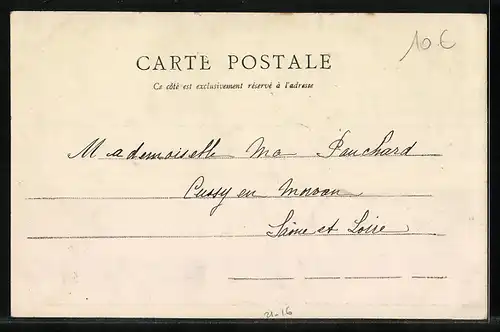 10 €
CARTE POSTALE
Ce côté est exclusivement réservé à l'adresse
Mademoiselle Ma Fouchard
Cussy en Morvan
Saône et Loire
21-16